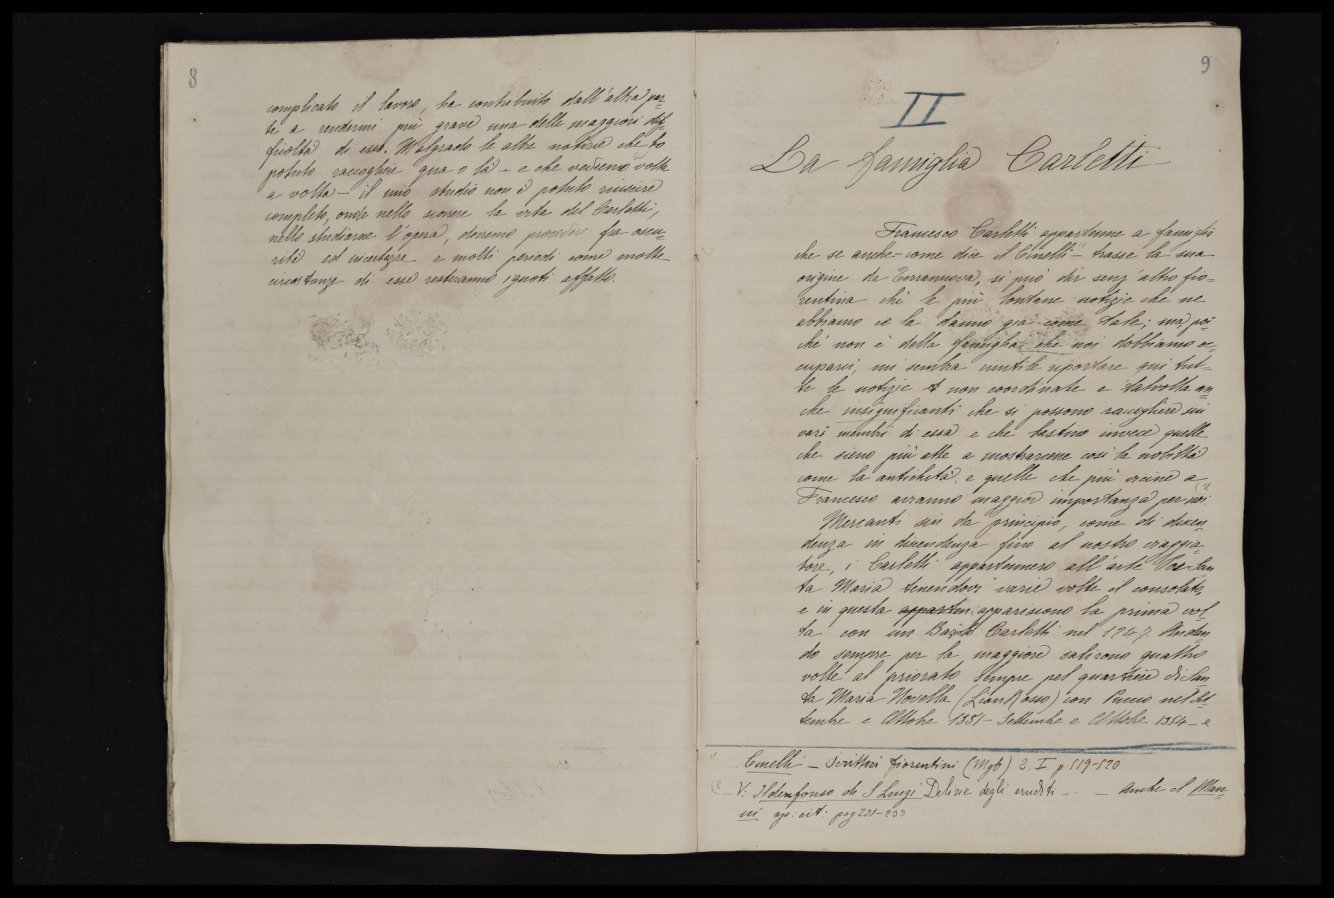 8
complicato il lavoro, ha contribuito dall'altra par=
te a rendermi più grave una delle maggiori dif=
ficoltà di esso. Malgrado le altre notizie che ho
potuto raccogliere qua o là - e che vedremo volta
a volta - il mio studio non è potuto riuscire
completo, onde nello scorrere la vita del Carletti,
nello studiarne l'opera, dovremo procedere fra oscu=
rità ed incertezze e molti periodi come molte
circostanze di esse resteranno ignoti affatto.
9
II
La famiglia Carletti
Francesco Carletti appartenne a famiglia
che se anche - come dice il Cinelli - trasse la sua
origine da Terranuova, si può dir senz'altro fio=
rentina chè le più lontane notizie che ne
abbiamo ce la danno già come tale; ma poi=
chè non è della famiglia che noi dobbiamo oc=
cuparci, mi sembra inutile riportare qui tut=
te le notizie non coordinate e talvolta an=
che insignificanti che si possono raccogliere sui
vari membri di essa e che bastino invece quelle
che sieno più atte a mostrarcene così la nobiltà
come la antichità, e quelle che più vicine a
Francesco avranno maggior importanza per noi.
Mercanti sin da principio, come di discen=
denza in discendenza fino al nostro viaggia=
tore, i Carletti appartennero all'arte Por San
ta Maria tenendovi varie volte il consolato,
e in questa apparten appariscono la prima vol=
ta con un Carletti nel 1247. Andan
do sempre per la maggiore salirono quattro
volte al priorato sempre pel quartiere di San
ta Maria Novella (Lion Rosso) con Puccio nel Set
tembre e Ottobre 1351 - Settembre e Ottobre 1354 - e
Cinelli - Scrittori fiorentini (Mgb) 2. I p 519-520
(2 - V. Ildenfonso di S Luigi Delizie degli eruditi - .. - Anche il Man=
ni op: cit: pag 231-233